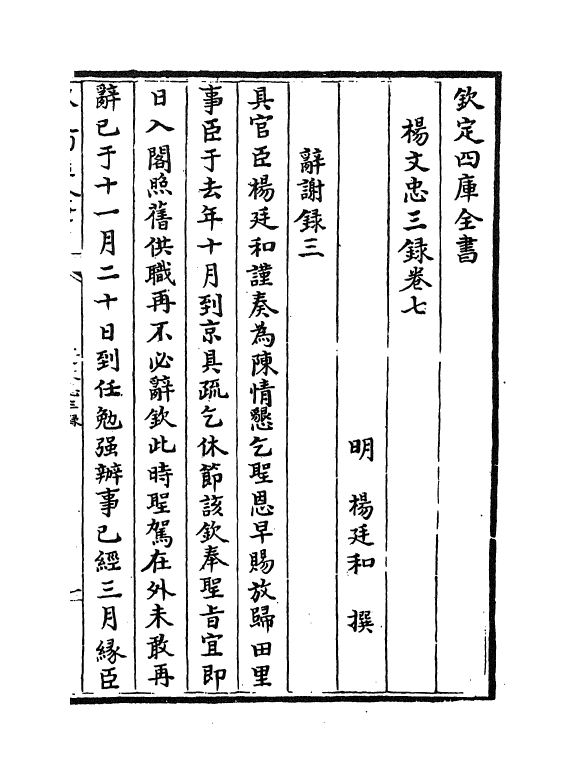 欽定四庫全書
楊文忠三録卷七
明　楊廷和　撰
辭謝録三
具官臣楊廷和謹奏為陳情懇乞聖恩早賜放歸田里
事臣于去年十月到京具疏乞休節該欽奉聖旨宜即
日入閣照舊供職再不必辭欽此時聖駕在外未敢再
辭已于十一月二十日到任勉强辦事已經三月緣臣